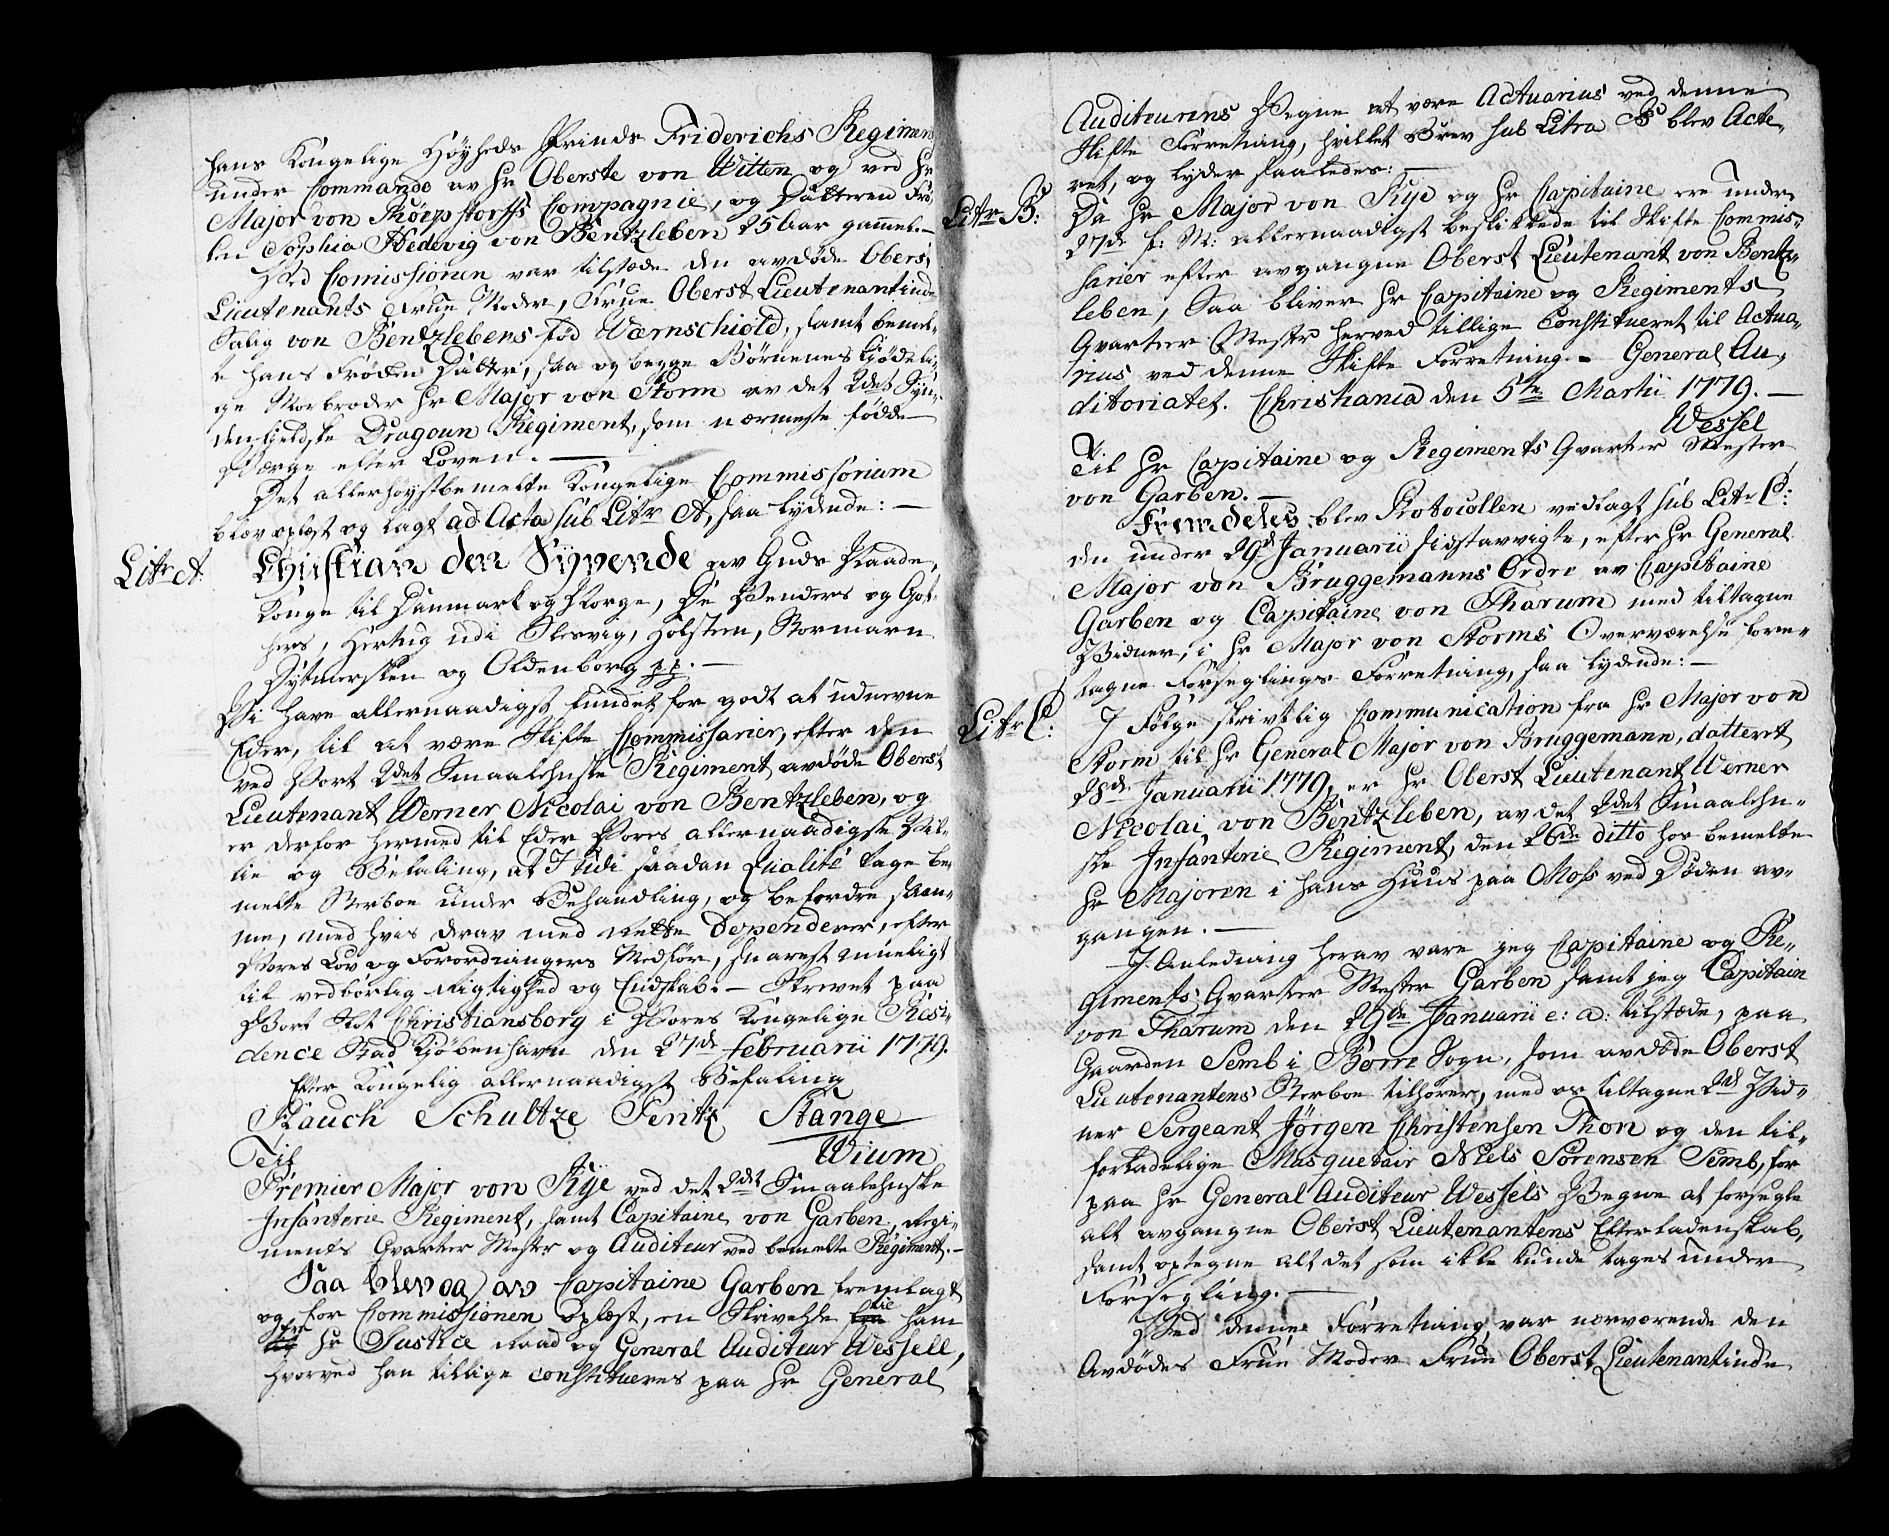 hans Kongelige Höyheds Prinds Friderichs Regiment
under Commando av Hr Oberste von Witten og ved Hr
Major von Thörpstorffs Compagnie, og Datteren Frö-
ken Sophia Hedevig von Bentzleben 25 Aar gammel.—
Ved Comissionen var tilstæde den avdöde Oberst
Lieutenants Frue Moder, Frue Oberst Lieutenantinde
Salig von Bentzlebens föd Wærnschiold, samt bemel-
te hans Fröken Datter, saa og begge Börnenes Kiödeli-
ge Morbroder Hr Major von Storm av det 2det Syn-
denfieldske Dragoun Regiment, som nærmeste födde
Værge efter Loven.—
Det allerhöystbemelte Kongelige Commissorium
blev oplæst og lagt ad Acta sub Litr A, saa lydende:—
Litr A:
Christian den Syvende av Guds Naade,
Konge til Danmark og Norge, De Venders og Got-
hers, Hertug udi Slesvig, Holsteen, Stormarn
Dytmersken og Oldenborg pp.—
Vi have allernaadigst fundet for godt at udnevne
Eder, til at være Skifte Commissarier, efter den
ved Vort 2det Smaalehnske Regiment avdöde Oberst
Lieutenant Werner Nicolai von Bentzleben, og
er derfor hermed til Eder Vores allernaadigste Vil-
lie og Befaling, at I udi saadan Qualité tage be-
melte Sterboe under Behandling, og befordre sam-
me, med hvis derav med rette Dependerer, efter
Vores Lov og Forordningers Medför, snarest mueligt
til vedbörlig Rigtighed og Endskab.— Skrevet paa
Vort Slot Christiansborg i Vores Kongelige Resi-
dence Stad Kiöbenhavn den 27de Februarii 1779.
Efter Kongelig allernaadigst Befaling
Rauch Schultze Fentz Stange
Wium
Til
Premier Major von Rÿe ved det 2det Smaalehnske
Infanterie Regiment, samt Capitaine von Garben, Regi-
ments Qvarteer Mestr og Auditeur ved bemelte Regiment.—
Saa blev og av Capitaine Garben fremlagt
og for Commissionen oplæst, en Skrivelse til ham
fra Hr Justice Raad og General Auditeur Wessell,
hvorved han tillige constitueres paa Hr General
Auditeurens Vegne at være Actuarius ved denne
Skifte Forretning, hvilket Brev sub Litra B blev Acte-
ret, og lyder saaledes:—
Litr B:
Da Hr Major von Rye og Hr Capitaine ere under
27de f: M: allernaadigst beskikkede til Skifte Commis-
sarier efter avgangne Oberst Lieutenant von Bentz-
leben, Saa bliver Hr Capitaine og Regiments
Qvarteer Mestr herved tillige Constitueret til Actua-
rius ved denne Skifte Forretning.— General Au-
ditoriatet. Christiania den 5te Martii 1779.—
Wessel
Til Hr Capitaine og Regiments Qvarter Mester
von Garben.—
Fremdeles blev Protocollen vedlagt sub Litr C:
den under 29d Januarii sidstavvigte, efter Hr General
Major von Bruggemanns Ordre av Capitaine
Garben og Capitaine von Tharum med tiltagne
Vidner, i Hr Major von Storms Overværelse fore-
tagne Forseglings Forretning, saa lydende:—
Litr C:
I Fölge skrivtlig Communication fra Hr Major von
Storm til Hr General Major von Bruggemann, datteret
28de Januarii 1779, er Hr Oberst Lieutenant Werner
Nicolai von Bentzleben, av det 2det Smaalehn-
ske Infanterie Regiment, den 26de ditto hos bemelte
Hr Majoren i hans Huus paa Moss ved Döden av-
gangen.—
I Anledning herav vare jeg Capitaine og Re-
giments Qvarteer Mester Garben samt jeg Capitain
von Tharum den 29de Januarii e: a: tilstæde, paa
Gaarden Semb i Borre Sogn, som avdöde Oberst
Lieutenantens Sterboe tilhörer, med os tiltagne 2de Vid-
ner Sergeant Jörgen Christensen Thon og den til-
forladelige Musquetair Niels Sörensen Semb, for
paa Hr General Auditeur Wessels Vegne at forsegle
alt avgangne Oberst Lieutenantens Efterladenskab,
samt optegne alt det som ikke kunde tages under
Forsegling.—
Ved denne Forretning var nærværende den
Avdödes Frue Moder Frue Oberst Lieutenantinde